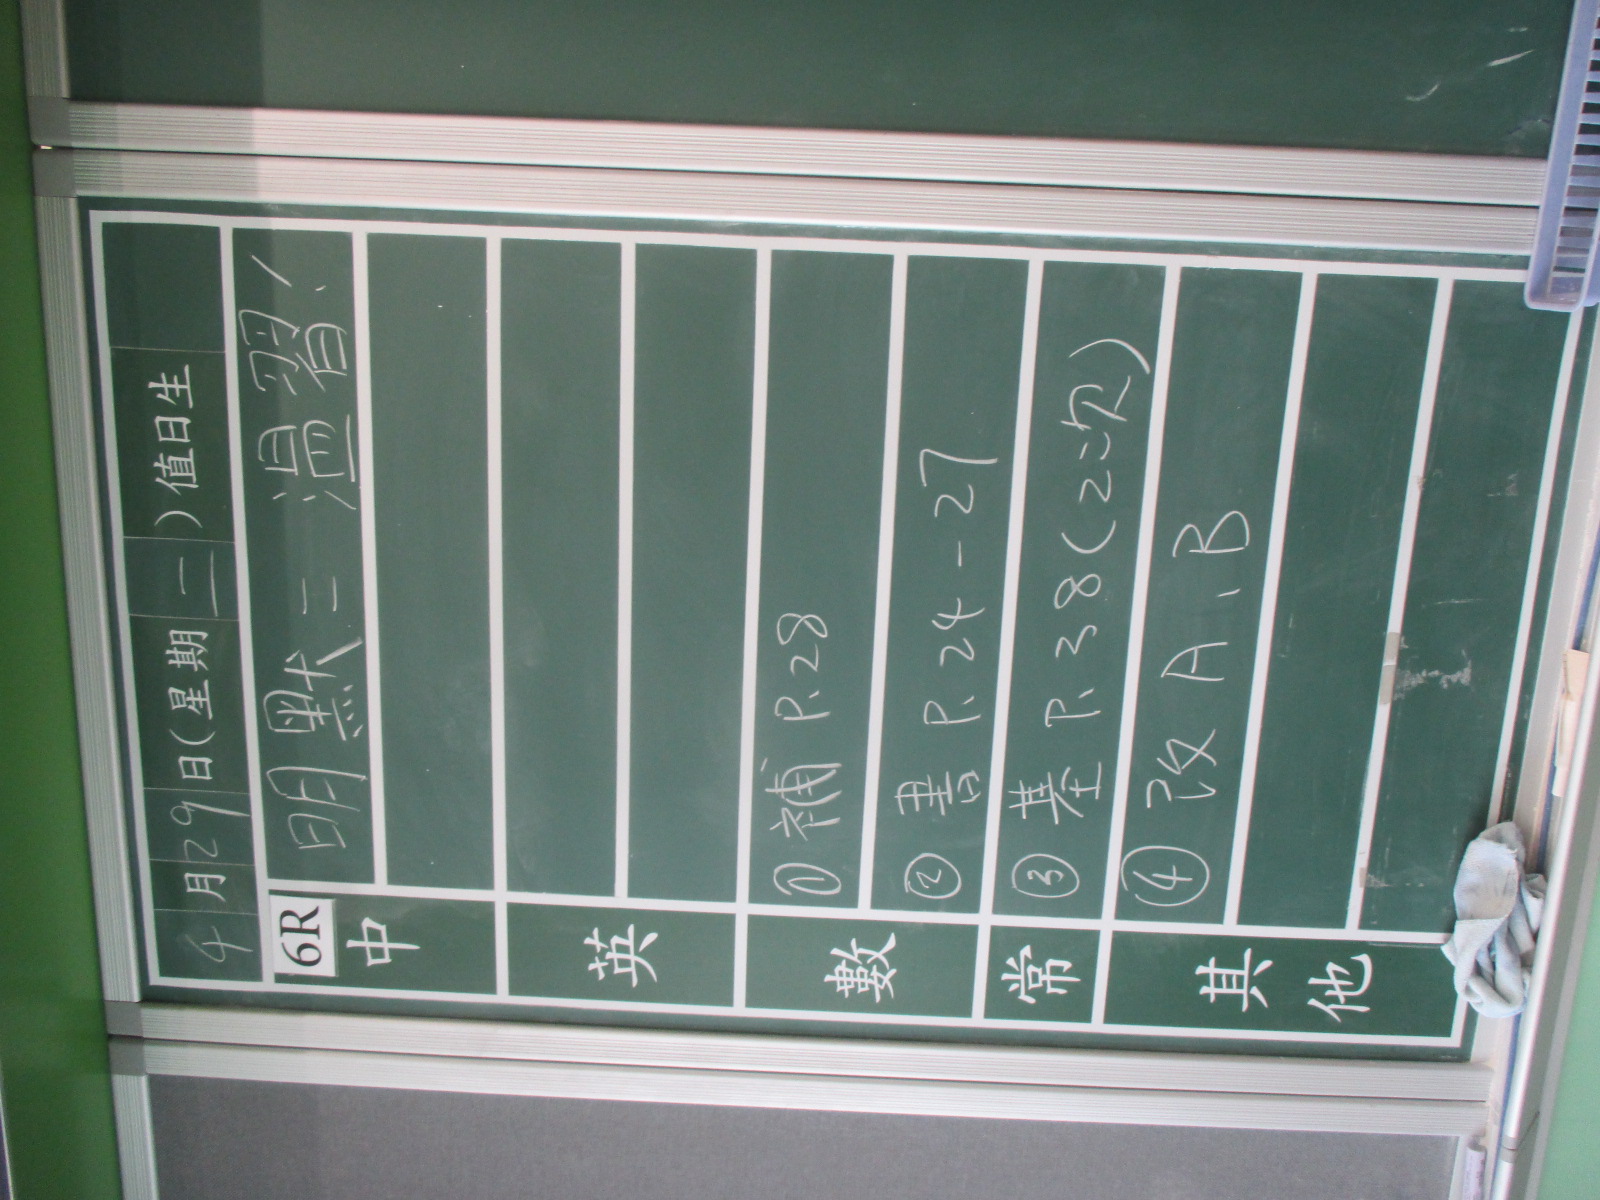 4月29日(星期二)值日生
6R
中 明默二 溫習
英
數 ①補 P.28
②書 P.24-27
常 ③基 P.38(2次)
其他 ④改 A、B